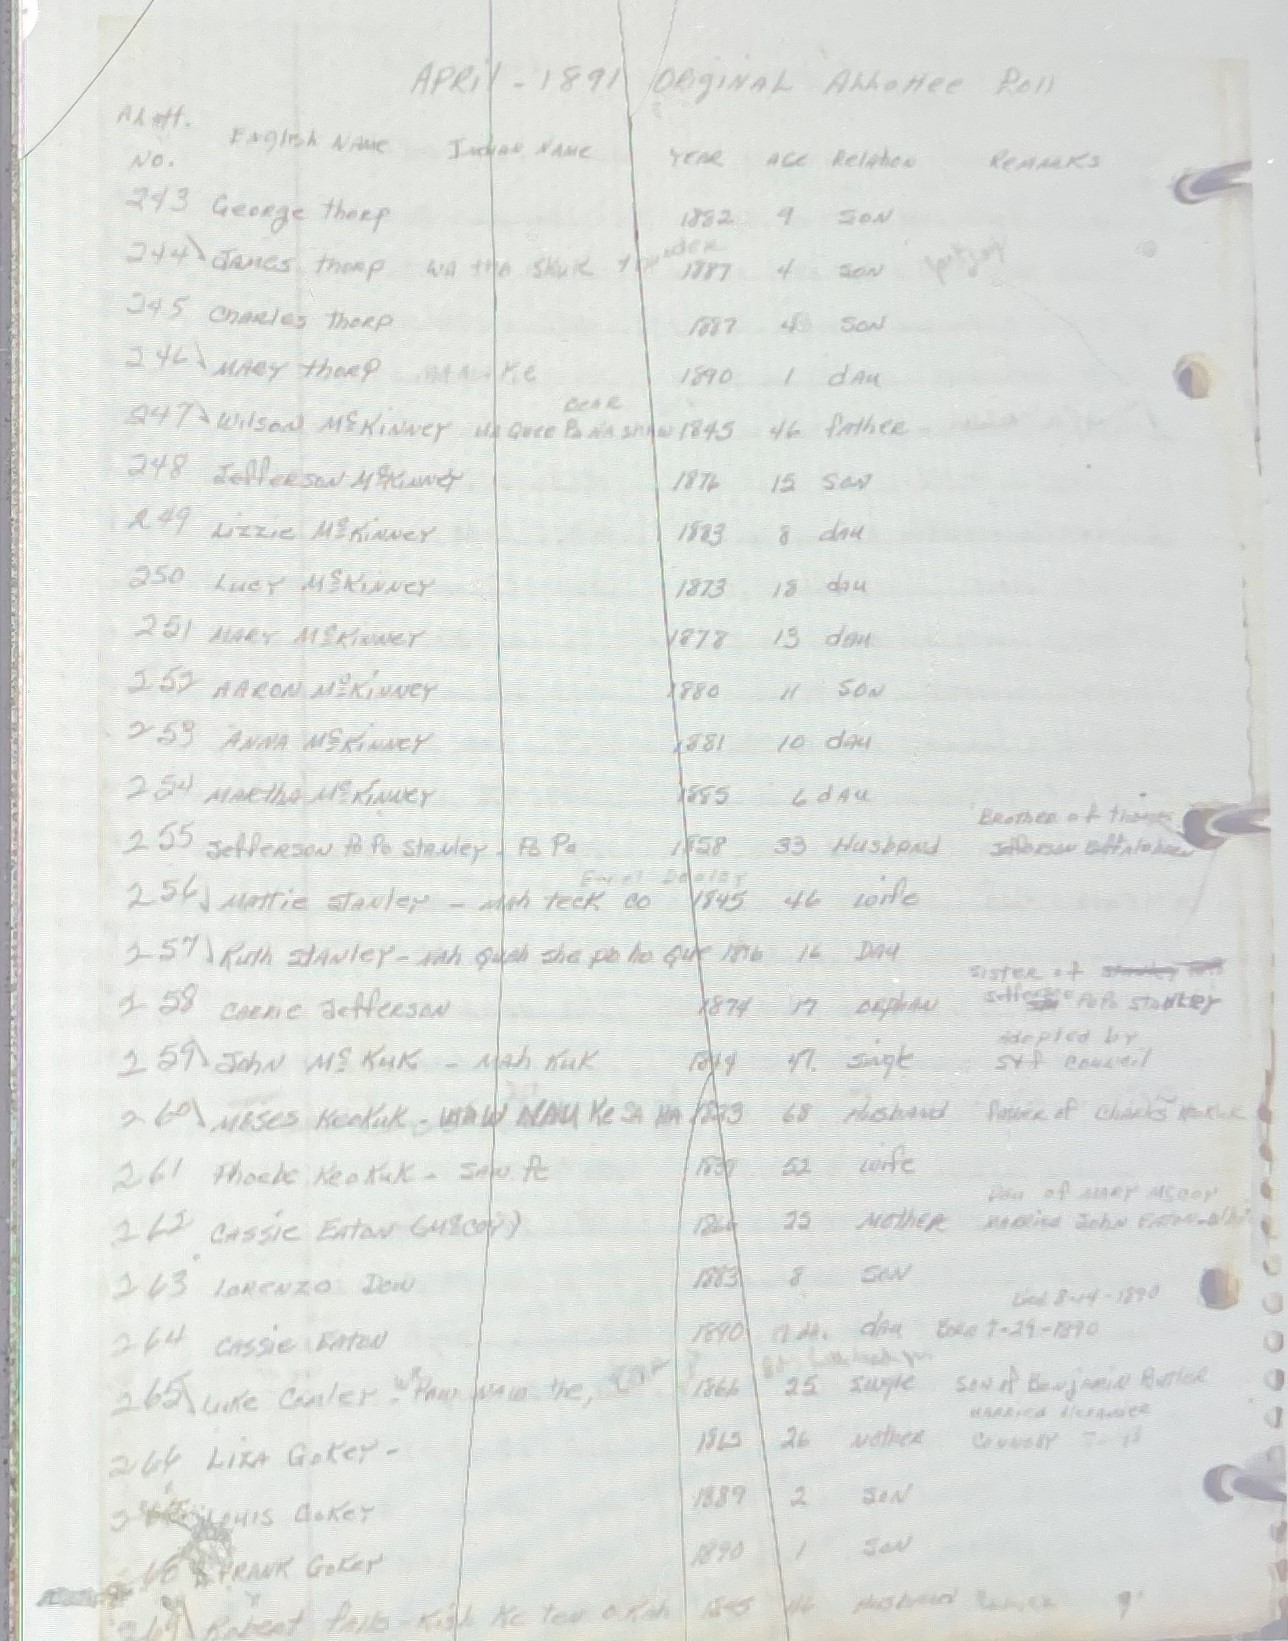 APRIL - 1891 ORIGINAL Allottee Roll
Allott. No. English NAME Indian NAME YEAR AGE Relation REMARKS
243 George thorp 1882 9 SON
244 JAMES thorp WA tho SKUK 1887 4 SON
245 CHARLES thorp 1887 4 SON
246 MARY thorp 1890 1 dAU
BEAR
247 Wilson McKinney 1845 46 father
248 Jefferson McKinney 1876 15 SON
249 Lizzie McKinney 1883 8 dAU
250 LUCY McKinney 1873 18 dau
251 MARY McKinney 1878 13 dAU
252 AARON McKinney 1880 11 SON
253 ANNA McKinney 1881 10 dAU
254 MARthA McKinney 1885 6 dAU
Brother of
255 Jefferson Po Po Stanley - Po Po 1858 33 Husband Jefferson
256 Mattie Stanley - MAh teck Co 1845 46 wife
257 Ruth StANley - NAh Quah she po ho que 16 DAU
Sister of
258 CARRIE Jefferson 1874 17 ORPHAN Jefferson PoPo Stanley
Adopted by
259 John McKuk - MAh Kuk 1844 47 Single S&F Council
260 MOSES KeoKuk - WAW NAU Ke SA HA 1823 68 Husband of Charles KeoKuk
261 Phoebe KeoKuk - 1839 52 wife
Dau of MARY McCoy
262 CASSIE EATON (McCoy) 25 MOTHER MARRIED John EATON
263 LORENZO Dow 1883 8 SON
Died 8-14-1890
264 CASSIE EATON 1890 dau Born 7-29-1890
265 Luke 1866 25 Single SON of Benjamin Butler
MARRIED
266 LIZA GOKEY - 1865 26 MOTHER
LOUIS GOKEY 1889 2 SON
FRANK GOKEY 1890 1 SON
269 Robert 1845 46 Husband